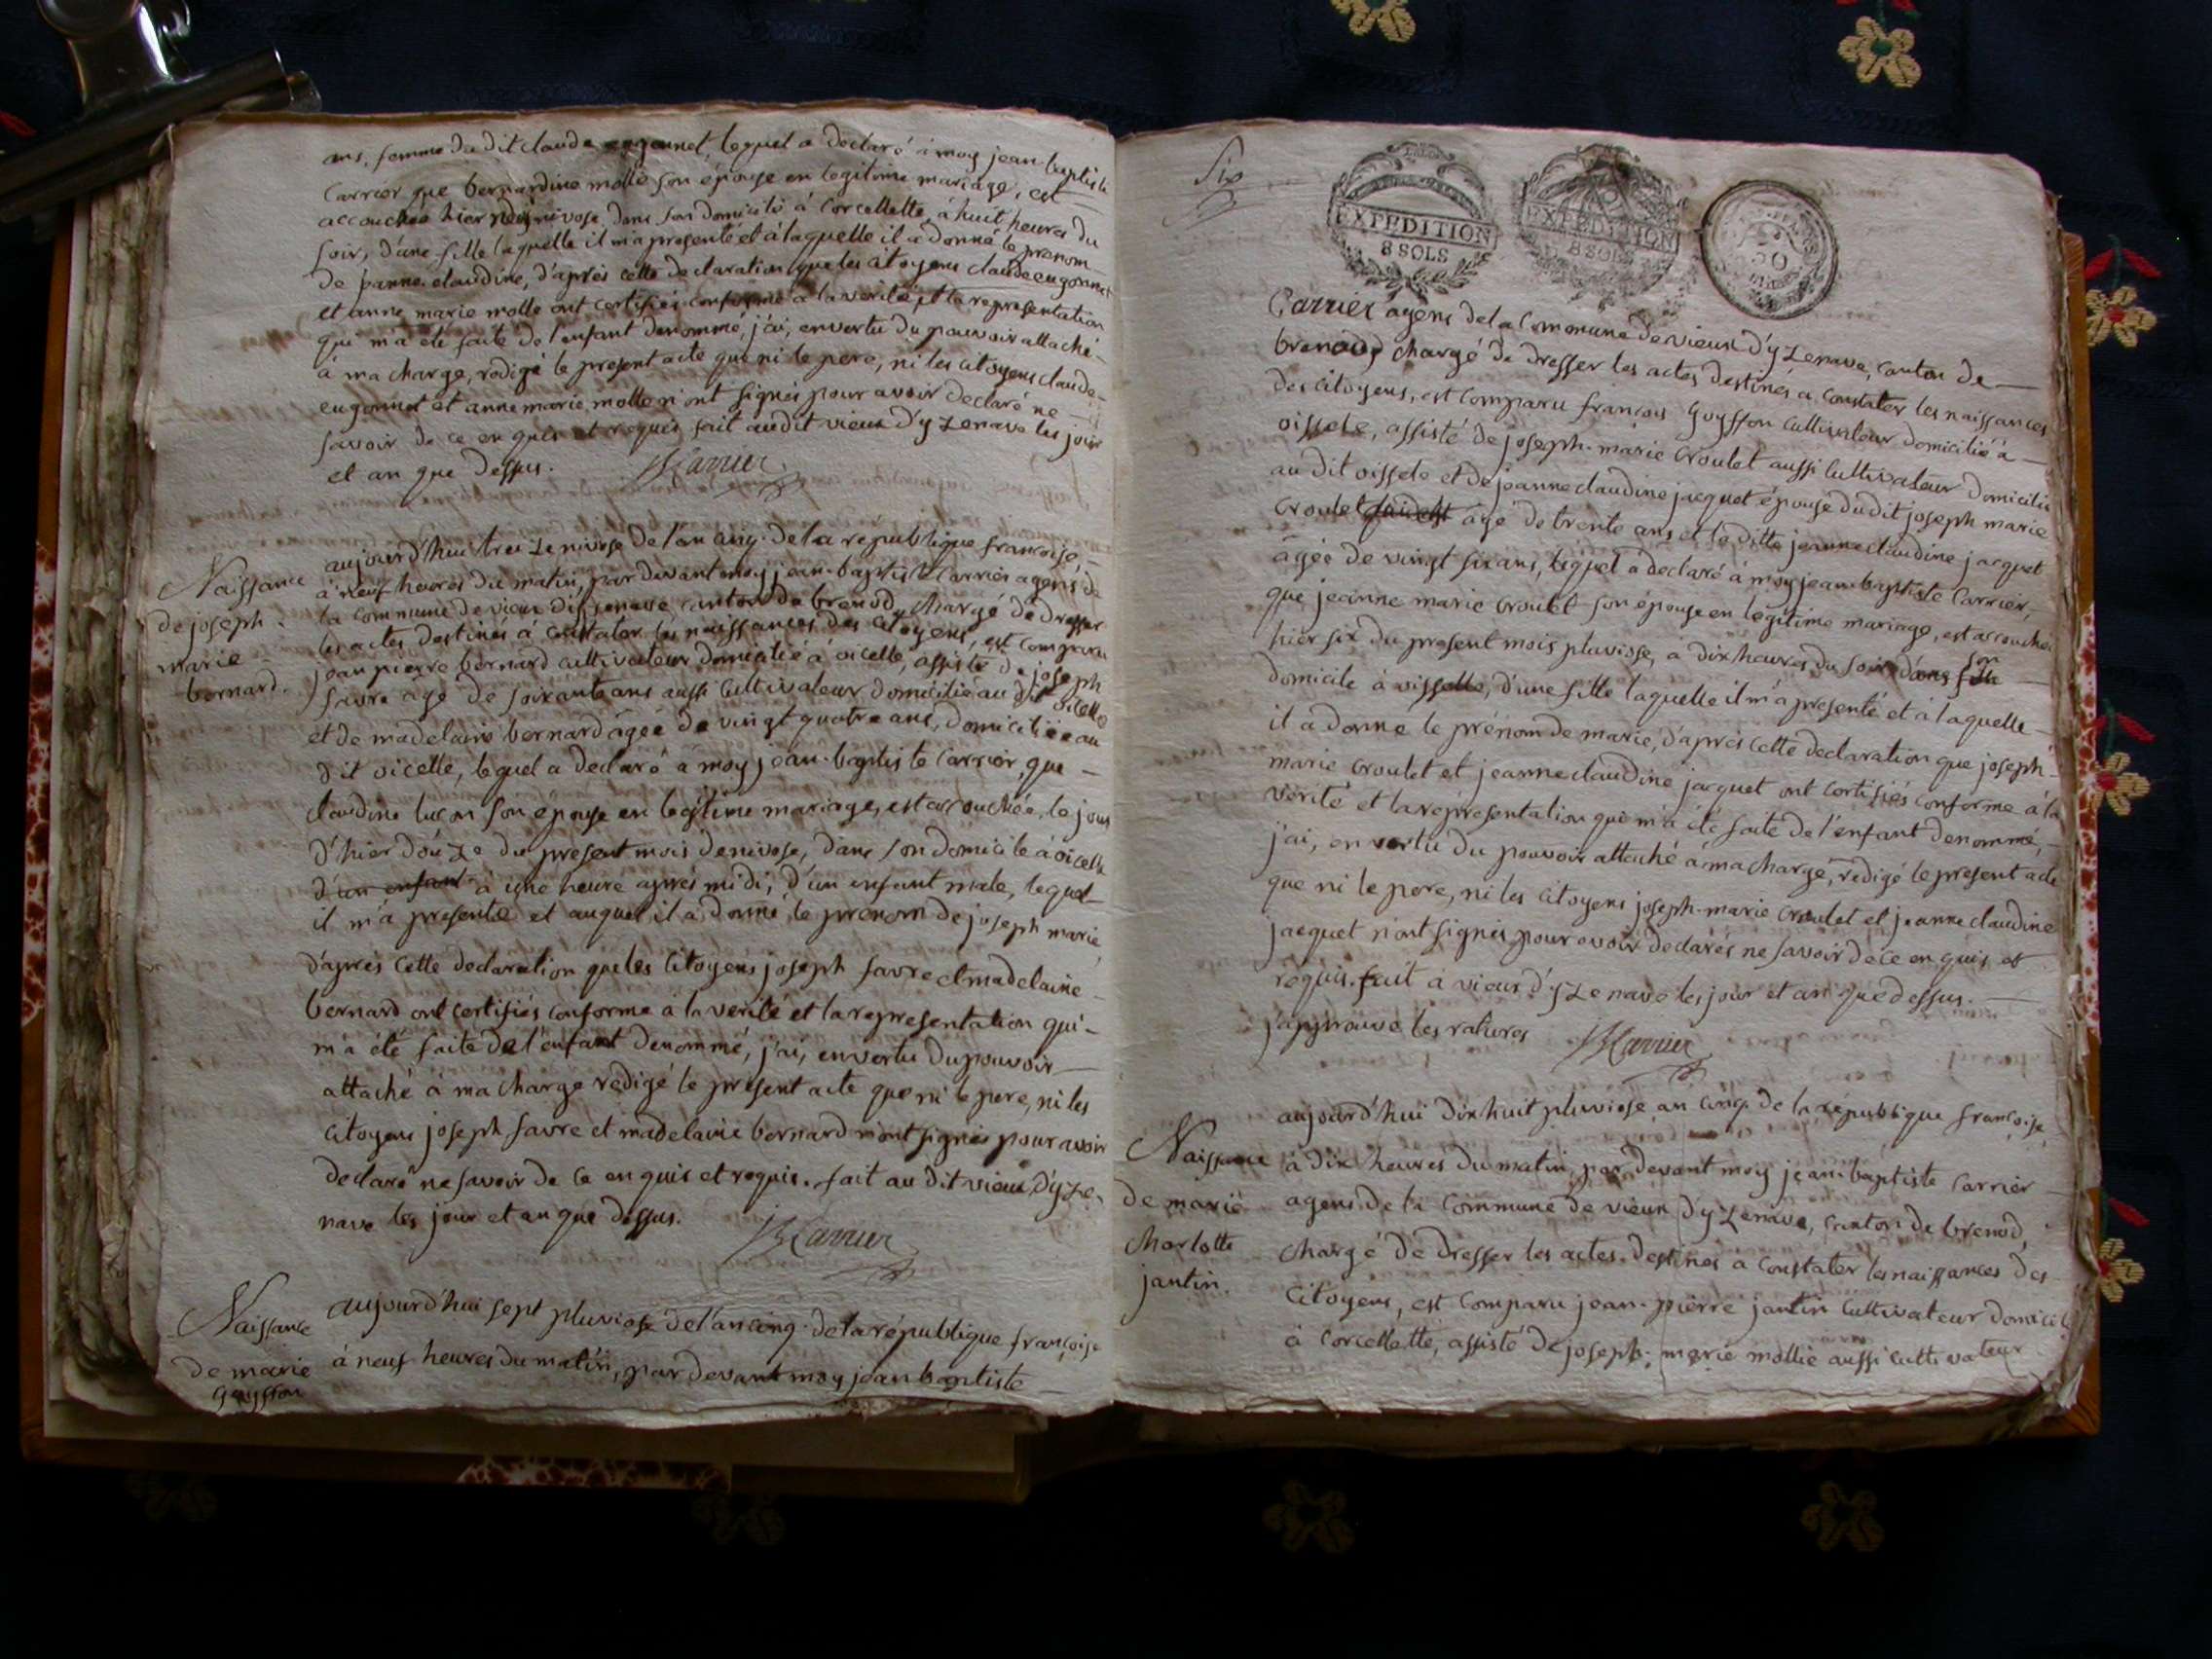 ans, femme du dit claude eugonnet, lequel a declaré à moy jean-baptiste
Carrier que bernardine molle son épouse en legitime mariage, est
accouchée hier nivose, dans son domicile à Corcellette, à huit heures du
soir, d'une fille laquelle il m'a presenté et à laquelle il a donné le prenom
de claudine, d'après cette declaration que les citoyens claude eugonnet
et anne marie molle ont certifiés conforme à la verité et la representation
qui m'a été faite de l'enfant denommé, j'ai, en vertu du pouvoir attaché
à ma charge, redigé le present acte que ni le pere, ni les citoyens claude
eugonnet et anne marie molle n'ont signés pour avoir declaré ne
savoir de ce en quis et requis fait audit vieux d'yzenave les jour
et an que dessus. JBCarrier
Naissance
de joseph
marie
bernard.
aujourd'hui treizenivose de l'an cinq de la republique françoise,
à neuf heures du matin, par devant moy jean-baptiste Carrier agent de
la commune de vieux d'izenave canton de brenod, chargé de dresser
les actes destinés à constater les naissances des citoyens, est comparu
jean pierre bernard cultivateur domicilié à oicelle, assisté de joseph
favre agé de soixante ans aussi cultivateur domicilié au dit oicelle
et de madelaine bernard âgée de vingt quatre ans, domiciliée au
dit oicelle, lequel a declaré à moy jean-baptiste Carrier, que
claudine luçon son épouse en legitime mariage, est accouchée, le jour
d'hier douze du present mois de nivose, dans son domicile à oicelle
d'un enfant à une heure après midi, d'un enfant male, lequel
il m'a presenté et auquel il a donné le prenom de joseph marie,
d'après cette declaration que les citoyens joseph favre et madelaine
bernard ont certifiés conforme à la verité et la representation qui
m'a été faite de l'enfant denommé, j'ai, en vertu du pouvoir
attaché à ma charge redigé le present acte que ni le pere, ni les
citoyens joseph favre et madelaine bernard n'ont signés pour avoir
declaré ne savoir de ce en quis et requis. fait au dit vieux d'yze-
nave les jour et an que dessus. JBCarrier
Naissance
de marie
Goysson
aujourd'hui sept pluviose de l'an cinq de la république françoise
à neuf heures du matin, par devant moy jean baptiste
Six
EXPEDITION
8 SOLS
EXPEDITION
8 SOLS
50
Carrier agens de la Commune de vieux d'yzenave, canton de
brenod chargé de dresser les actes destinés à constater les naissances
des citoyens, est comparu francois Goysson cultivateur domicilié à
oissele, assisté de joseph-marie Croulet aussi cultivateur domicilié
au dit oissele et de jeanne claudine jacquet épouse du dit joseph marie
Croulet agé de trente ans et la ditte jeanne claudine jacquet
âgée de vingt six ans, lequel a declaré à moy jean-baptiste Carrier,
que jeanne marie Croulet son épouse en legitime mariage, est accouchée
hier six du present mois pluviose, à dix heures du soir dans son
domicile à oisselle, d'une fille laquelle il m'a presenté et à laquelle
il a donné le prénom de marie, d'après cette declaration que joseph
marie Croulet et jeanne claudine jacquet ont certifiés conforme à la
verité et la representation qui m'a été faite de l'enfant denommé,
j'ai, en vertu du pouvoir attaché à ma charge, redigé le present acte
que ni le pere, ni les citoyens joseph-marie Croulet et jeanne claudine
jacquet n'ont signés pour avoir declarés ne savoir de ce en quis et
requis. fait à vieux d'yzenave les jour et an que dessus.
j'approuve les ratures JBCarrier
Naissance
de marie
charlotte
jantin.
aujourd'hui dix huit pluviose an cinq de la république françoise
à dix heures du matin, par devant moy jean-baptiste Carrier
agens de la Commune de vieux d'yzenave, canton de brenod,
chargé de dresser les actes destinés à constater les naissances des
Citoyens, est comparu jean-pierre jantin cultivateur domicilié
à Corcellette, assisté de joseph-marie mollie aussi cultivateur